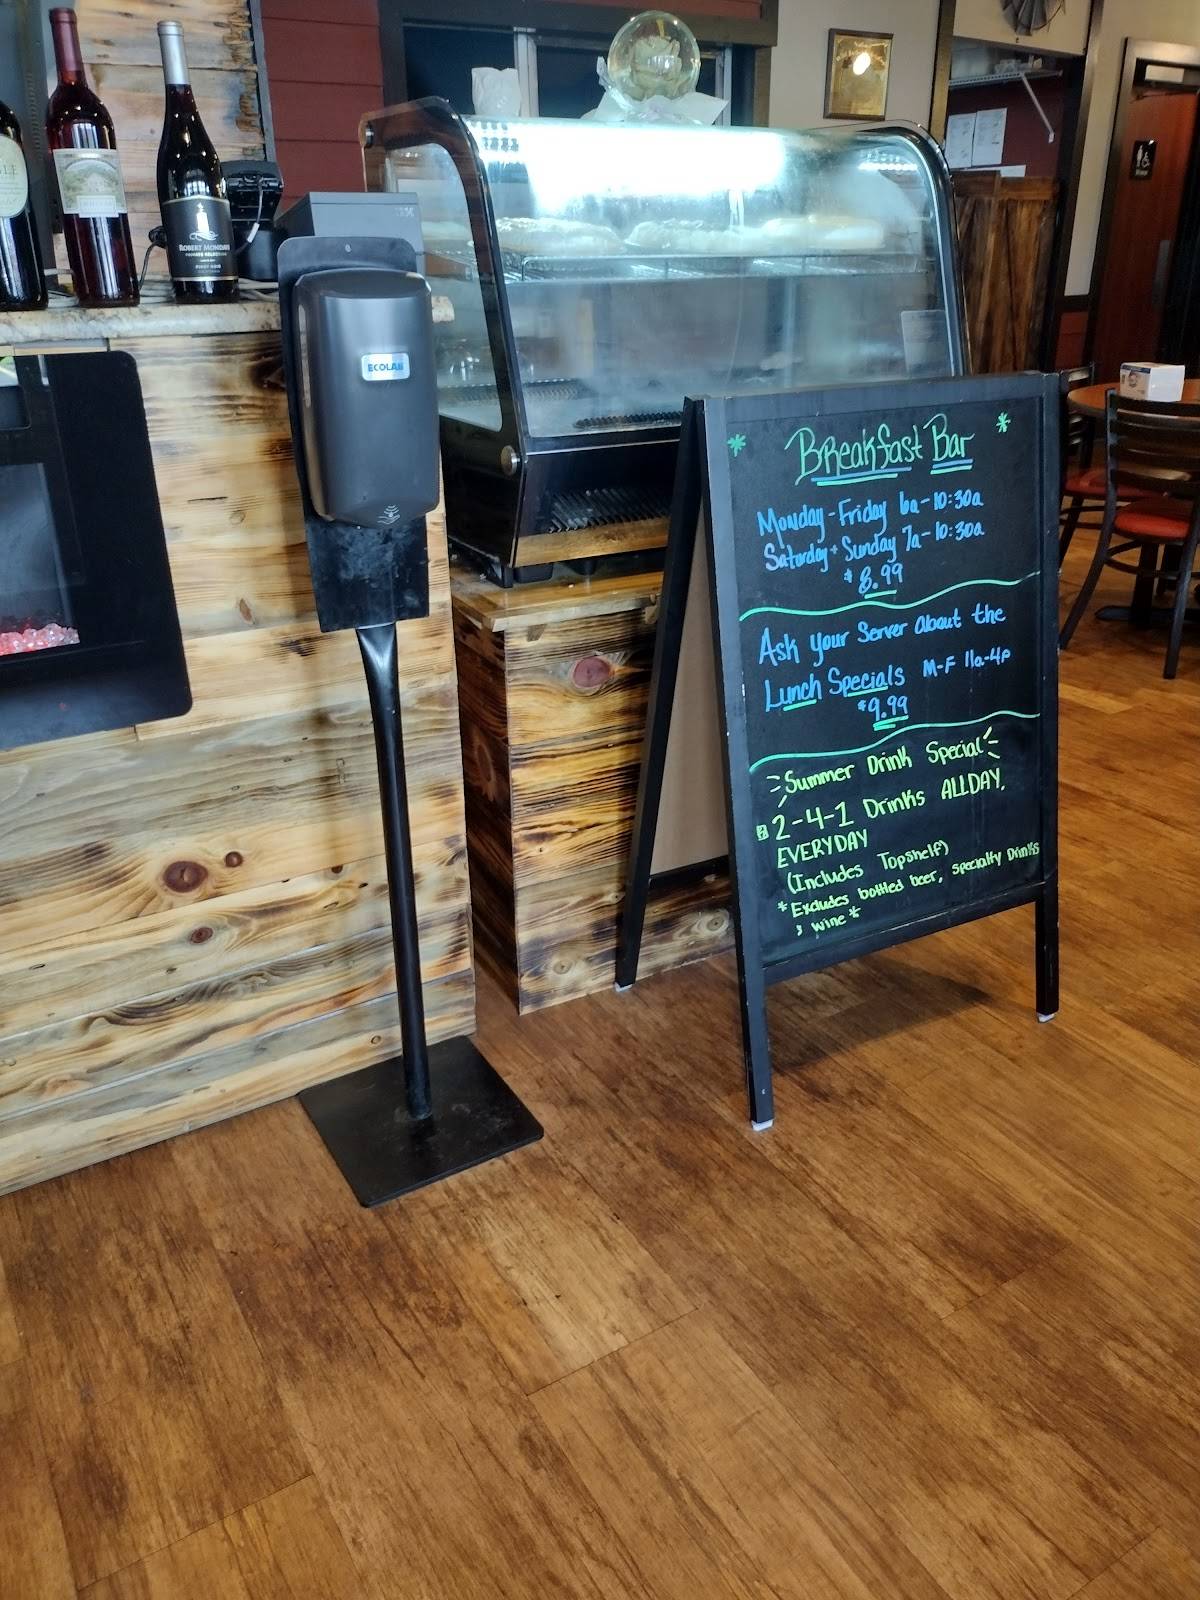 ROBERT MONDAVI
PRIVATE SELECTION
PINOT NOIR
ECOLAB
* Breakfast Bar *
Monday - Friday 6a-10:30a
Saturday + Sunday 7a-10:30a
$8.99
Ask your Server about the
Lunch Specials M-F 11a-4p
$9.99
Summer Drink Special
2-4-1 Drinks ALLDAY,
EVERYDAY
(Includes Topshelf)
* Excludes bottled beer, specialty Drinks
& wine *